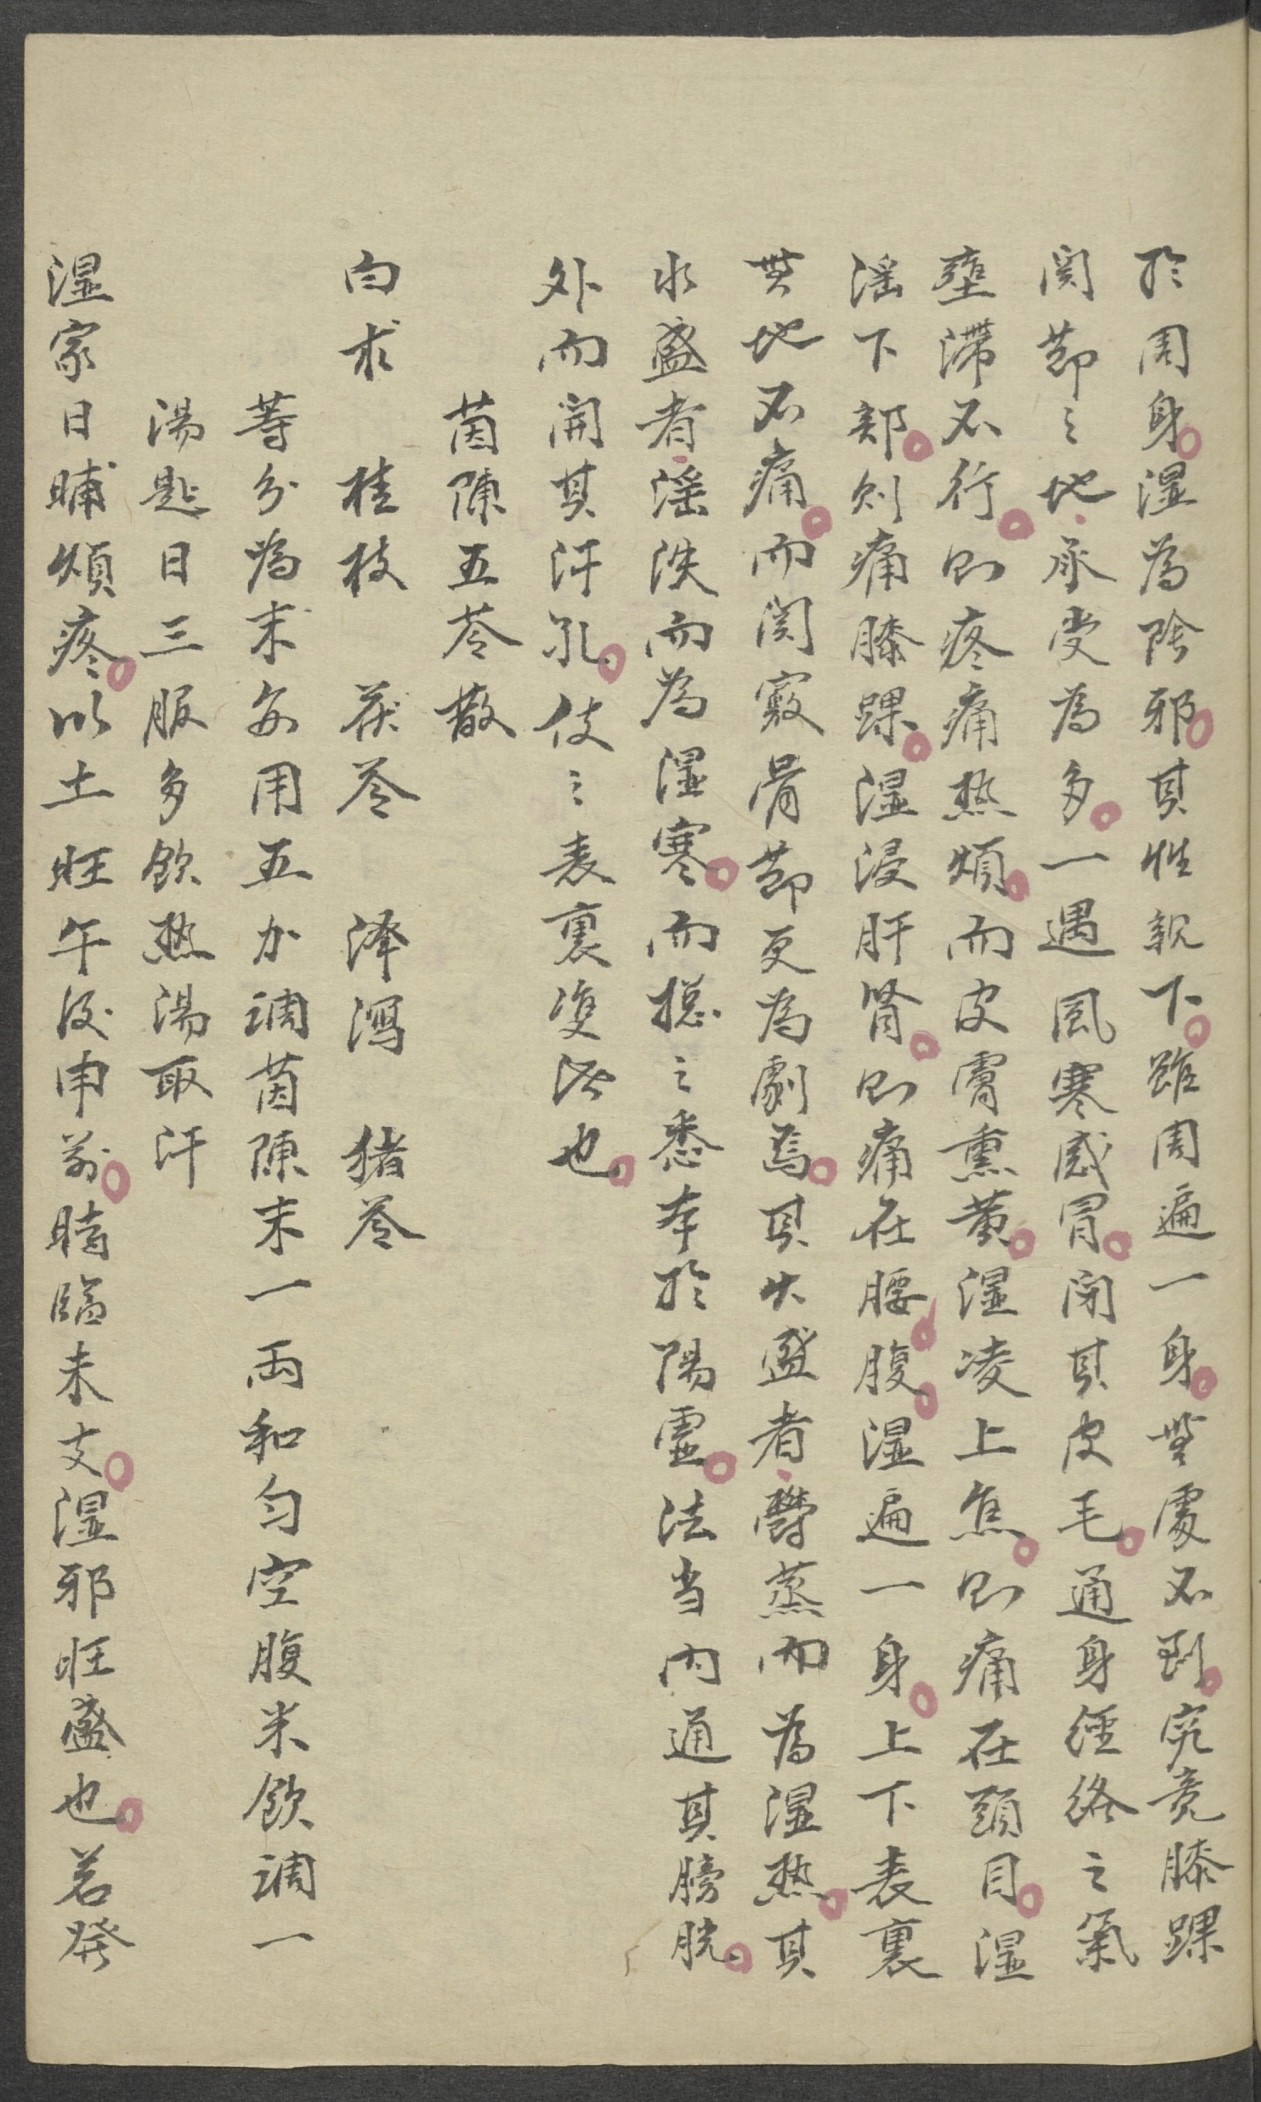 於周身湿為陰邪其性親下雖周遍一身無處不到究竟膝踝
関節之地承受為多一遇風寒感冒闭其皮毛通身経絡之氣
壅滞不行则疼痛热煩而皮膚熏黄湿凌上焦则痛在頭目湿
淫下部则痛膝踝湿浸肝肾则痛在腰腹湿遍一身上下表裏
無地不痛而関竅骨節更為劇焉其火盛者鬱蒸而為湿热其
水盛者淫泆而為湿寒而揔之悉本於陽虚法当内通其膀胱
外而開其汗孔使之表裏双泄也
茵陳五苓散
白术　桂枝　茯苓　泽瀉　猪苓
等分為末每用五分調茵陳末一両和匀空腹米飲調一
湯匙日三服多飲热湯取汗
湿家日晡煩疼以土旺午後申前時臨未支湿邪旺盛也若發